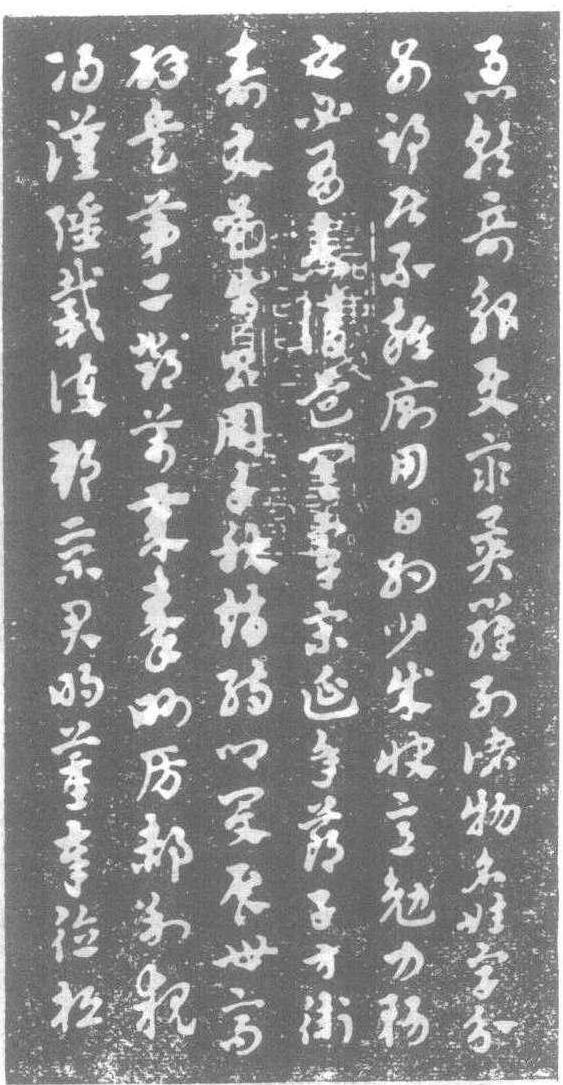 急就奇觚與衆異羅列諸物名姓字分
別部居不雜廁用日約少誠快意勉力務
之必有憙請道其章宋延年鄭子方衛
益壽史步昌周千秋趙孺卿爰展世高
辟兵第二鄧萬歲秦眇房郝利親
馮漢彊戴護郡景君明董奉德桓